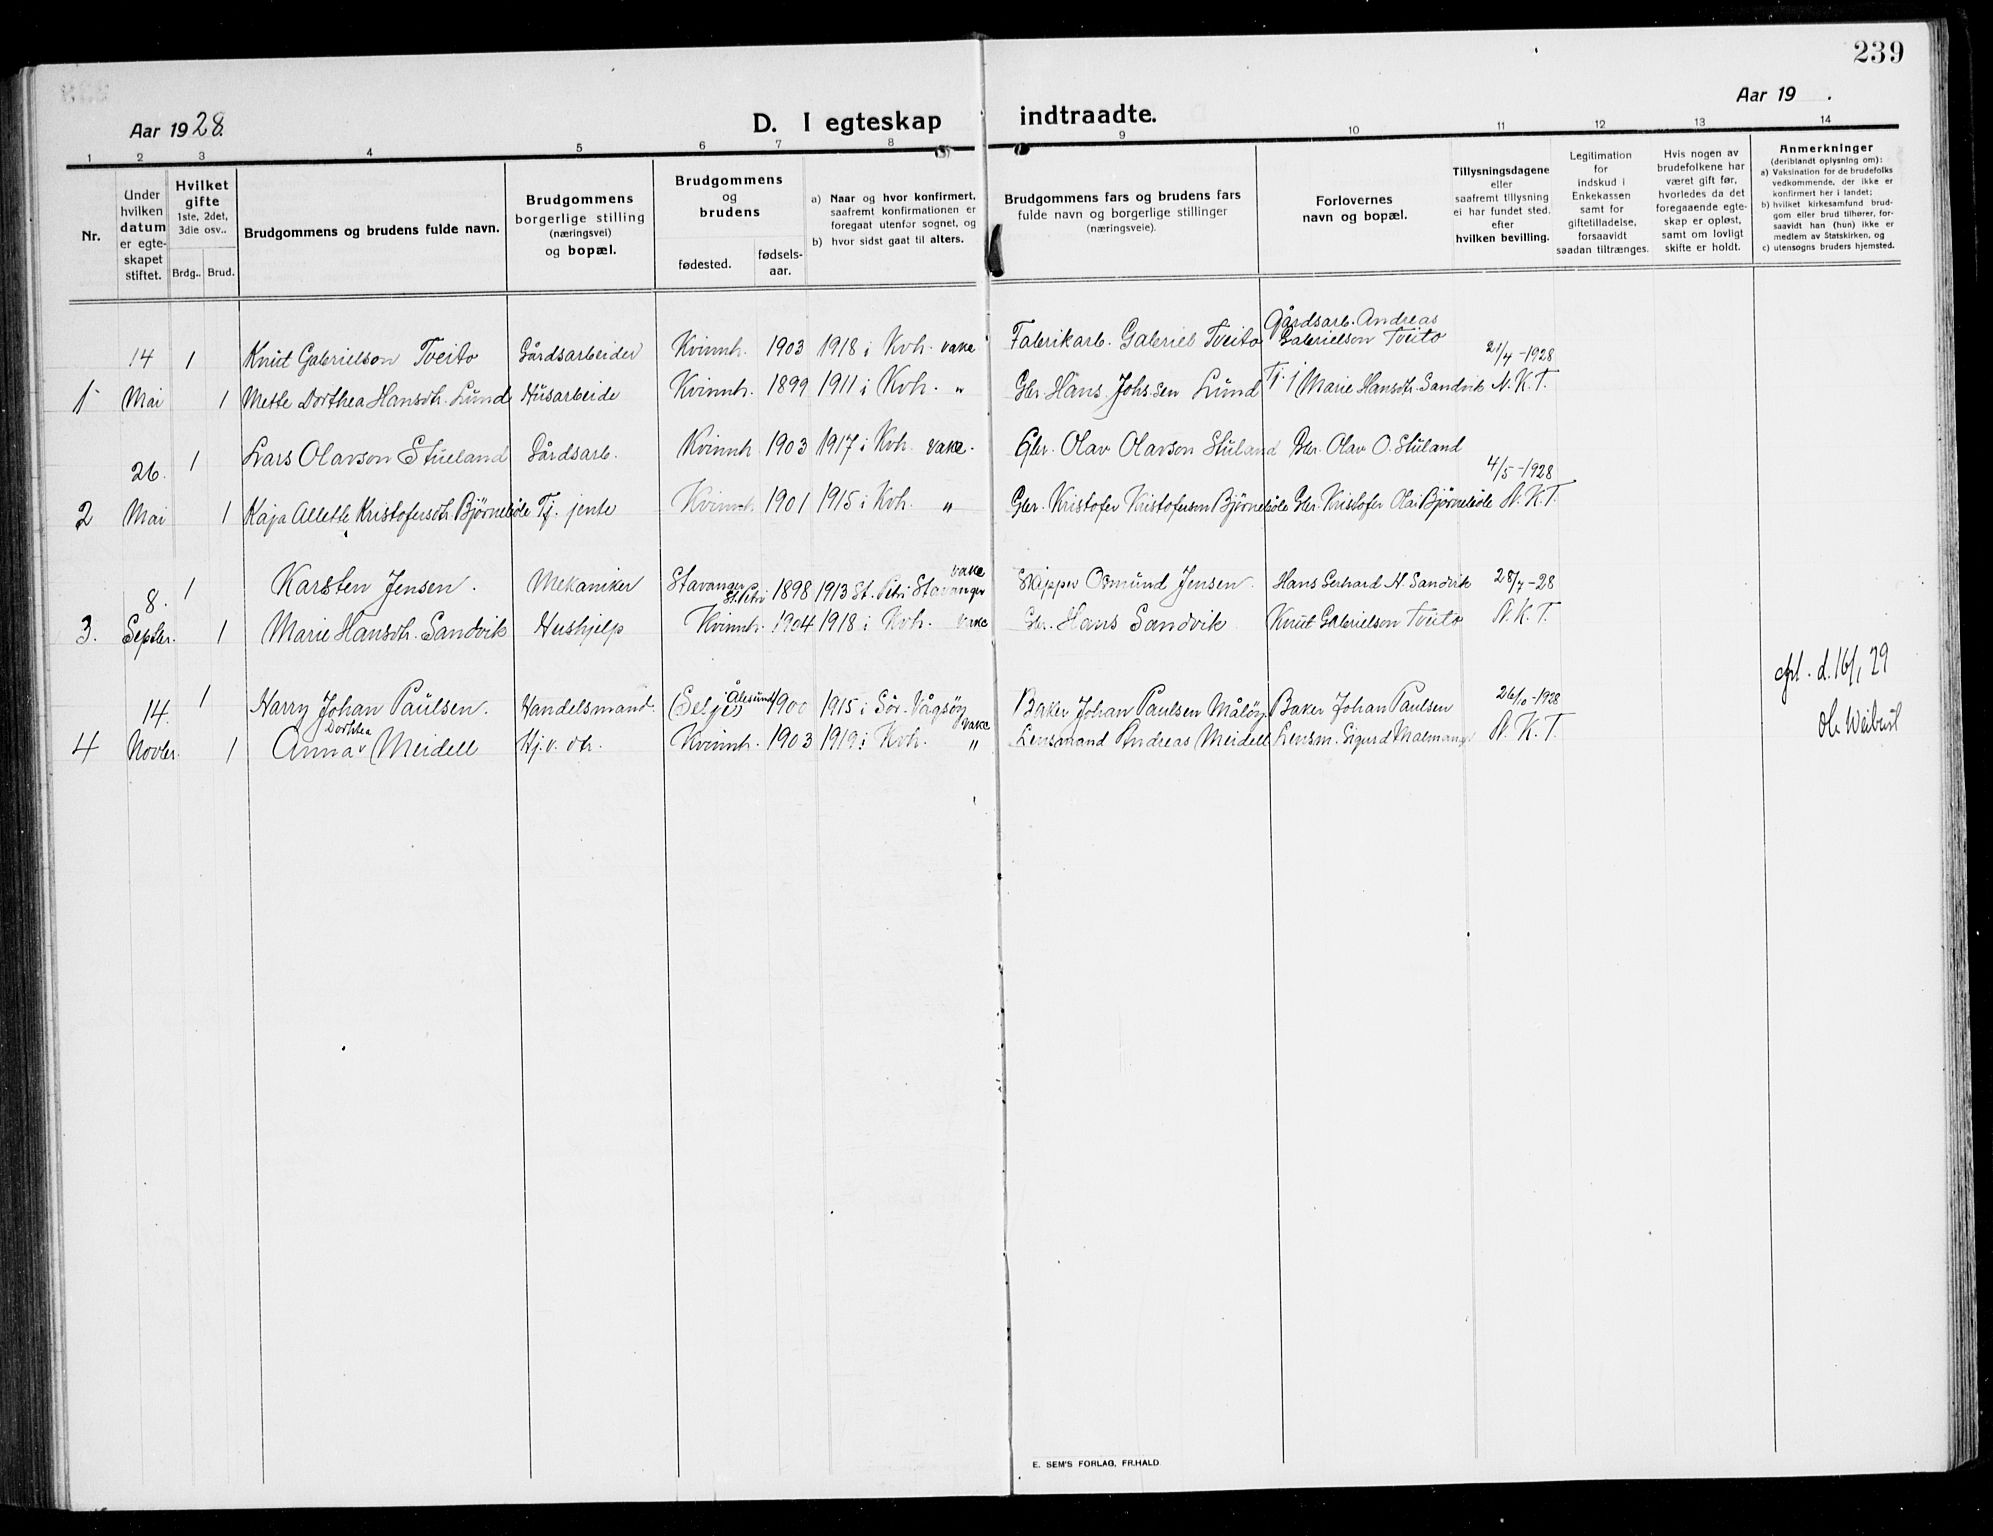 239
Aar 1928.
D. I egteskap indtraadte.
Aar 19 .
1 2 3 4 5 6 7 8 9 10 11 12 13 14
Nr.
Under hvilken datum er egte- skapet stiftet.
Hvilket gifte 1ste, 2det, 3die osv..
Brdg.. Brud.
Brudgommens og brudens fulde navn.
Brudgommens borgerlige stilling (næringsvei) og bopæl.
Brudgommens og brudens
fødested.
fødsels- aar.
a) Naar og hvor konfirmert, saafremt konfirmationen er foregaat utenfor sognet, og
b) hvor sidst gaat til alters.
Brudgommens fars og brudens fars fulde navn og borgerlige stillinger (næringsveie).
Forlovernes navn og bopæl.
Tillysningsdagene eller saafremt tillysning ei har fundet sted, efter hvilken bevilling.
Legitimation for indskud i Enkekassen samt for giftetilladelse, forsaavidt saadan tiltrænges.
Hvis nogen av brudefolkene har været gift før, hvorledes da det foregaaende egte- skap er opløst, samt om lovligt skifte er holdt.
Anmerkninger
(deriblandt oplysning om):
a) Vaksination for de brudefolks vedkommende, der ikke er konfirmert her i landet;
b) hvilket kirkesamfund brud- gom eller brud tilhører, for- saavidt han (hun) ikke er medlem av Statskirken, og
c) utensogns bruders hjemsted.
Gårdsarb. Andreas
14 1 Knut Gabrielson Tveito Gårdsarbeider Kvinnh. 1903 1918 i Kvh. vake Fabrikarb. Gabriel Tveito Gabrielson Tveito 21/4-1928
1 Mai 1 Mette Dorthea Hansdtr. Lund Husarbeide Kvinnh. 1899 1911 i Kvh. " Gbr. Hans Johs.sen Lund Tj. j Marie Hansdtr. Sandvik N.K.T.
26. 1 Lars Olavson Stueland Gårdsarb. Kvinnh 1903 1917 i Kvh. vake. Gbr. Olav Olavson Stuland Gbr. Olav O. Stuland 4/5-1928
2 Mai 1 Kaja Allette Kristofersdtr Bjørnebøle Tj. jente Kvinnh 1901 1915 i Kvh. " Gbr. Kristofer Kristoferson Bjørnebøle Gbr. Kristofer Olai Bjørnebøle N.K.T.
8. 1 Karsten Jensen. Mekaniker Stavanger St. Petri 1898 1913 St. Petri Stavanger vake Skipper Osmund Jensen. Hans Gerhard H. Sandvik 28/7-28
3. Septbr. 1 Marie Hansdtr. Sandvik Hushjelp Kvinnh. 1904 1918 i Kvh. vake Gbr. Hans Sandvik Knut Gabrielson Tveito N.K.T.
14. 1 Harry Johan Paulsen. Handelsmand. (Selje) Ålesund 1900 1915 i Sør-Vågsøy vake Baker Johan Paulsen Måløy Baker Johan Paulsen 26/10-1928 d. 16/1 29
4 Novbr. 1 Anna Dorthea Meidell Hj.v. dtr. Kvinnh. 1903 1919 i Kvh. " Lensmand Andreas Meidell Lensm. Sigurd Malmanger N.K.T.
E. SEM'S FORLAG, FR.HALD